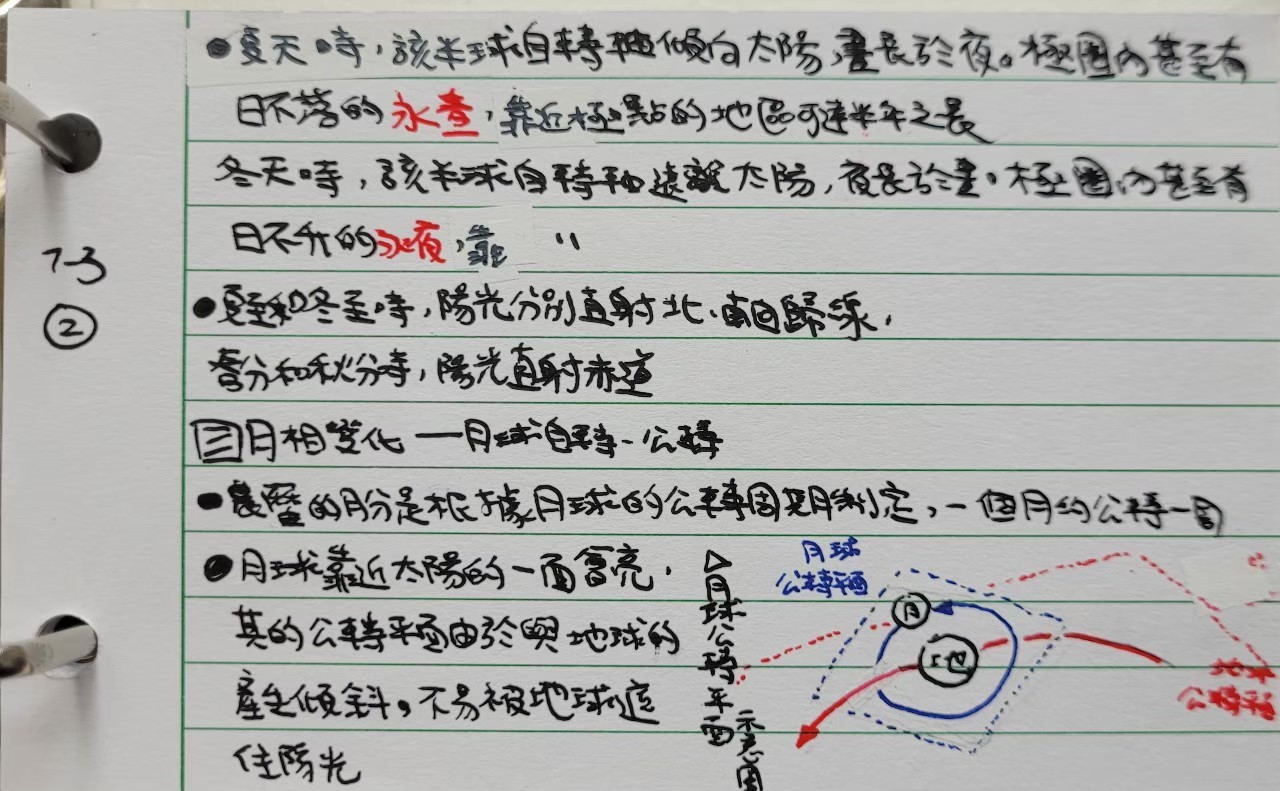 ●夏天時,該半球自轉軸傾向太陽,晝長於夜。極圈內甚至有
日不落的永晝,靠近極點的地區可達半年之長
冬天時,該半球自轉軸遠離太陽,夜長於晝。極圈內甚至有
日不升的永夜,靠 〃
7-3
②
●夏至和冬至時,陽光分別直射北、南回歸線,
春分和秋分時,陽光直射赤道
三月相變化 — 月球自轉、公轉
●農曆的月份是根據月球的公轉周期制定,一個月約公轉一周
●月球靠近太陽的一面會亮,
其的公轉平面由於與地球的
產生傾斜。不易被地球遮
住陽光
▷月球公轉平面
示意圖
月球
公轉平面
月
地
地球
公轉平面